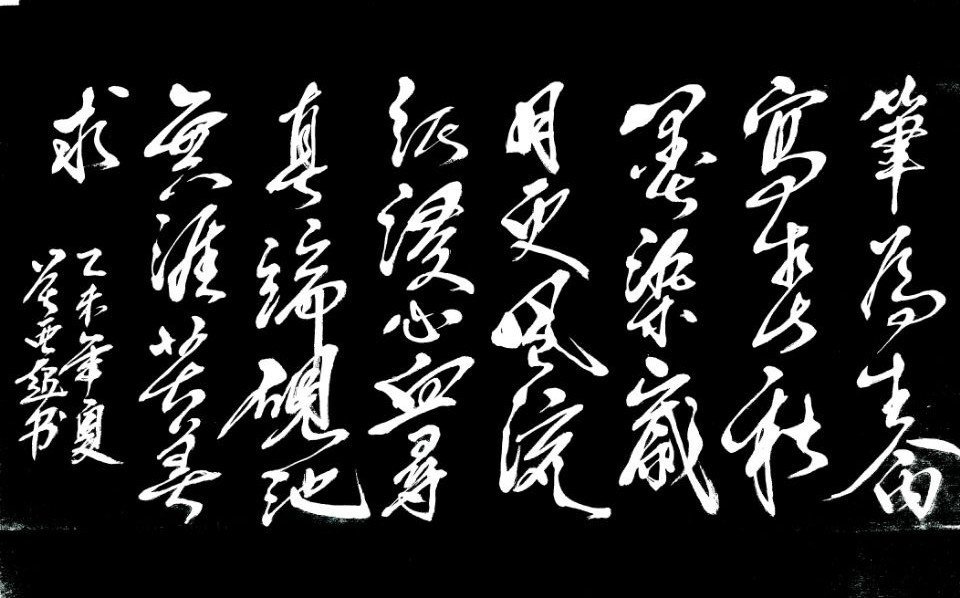 筆為生命
寫春秋
墨染歲
月更風流
紙浸心血尋
真諦硯池
無涯苦
求
乙未年夏
书